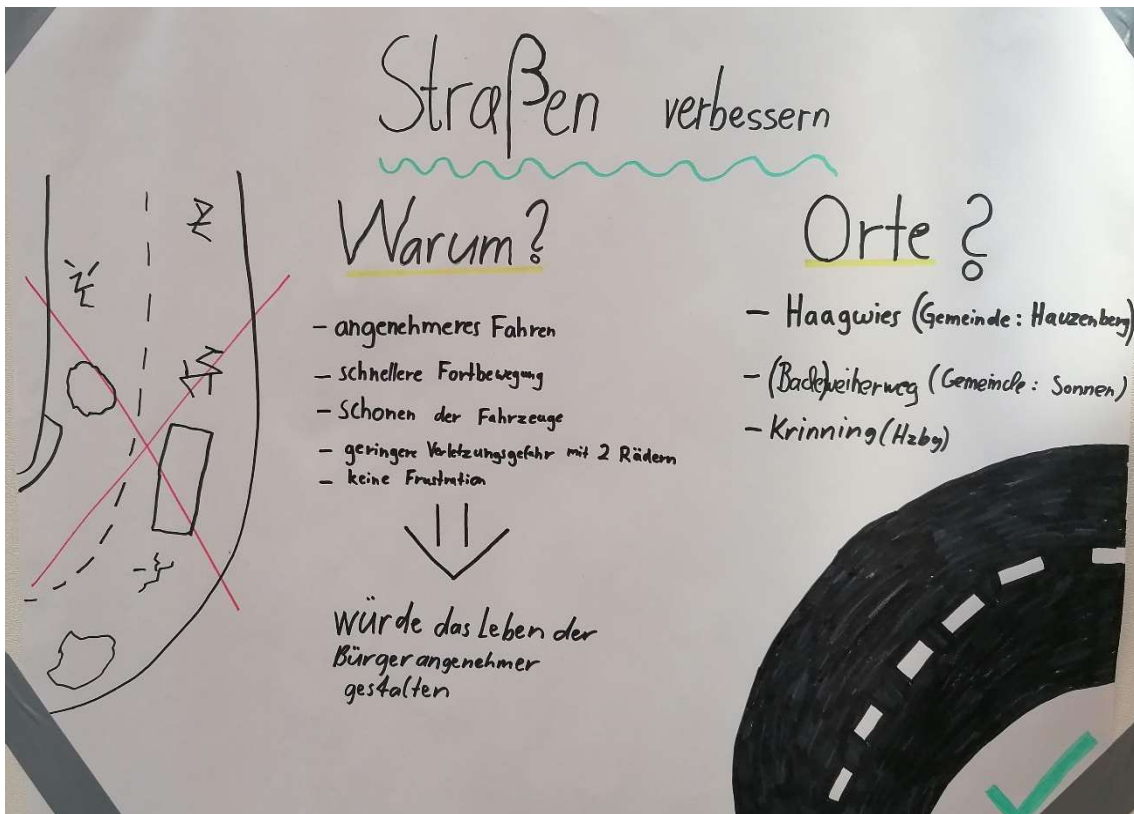 Straßen verbessern
Warum?
- angenehmeres Fahren
- schnellere Fortbewegung
- Schonen der Fahrzeuge
- geringere Verletzungsgefahr mit 2 Rädern
- keine Frustration
würde das Leben der
Bürger angenehmer
gestalten
Orte?
- Haagwies (Gemeinde: Hauzenberg)
- (Bade)weiherweg (Gemeinde: Sonnen)
- Krinning (Hzbg)